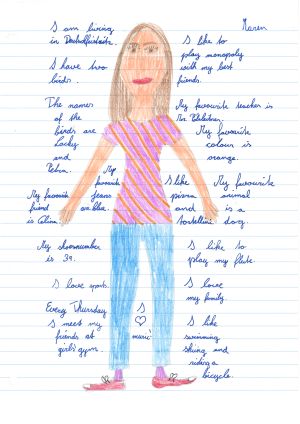 Maren
I am living
in
I have two
birds.
The names
of the
birds are
Lucky
and
My
favourite
jeans
are blue.
My favourite
friend
is Celina.
My shoenumber
is 39.
I love sports.
Every Thursday
I meet my
friends at
girls'gym.
I
♡
music
I like to
play monopoly
with my best
friends.
My favourite teacher is
Mr.
My favourite
colour is
orange.
I like
pizza
and
tortellini
My favourite
animal
is a
dog.
I like to
play my flute.
I love
my family.
I like
swimming
skiing and
riding a
bicycle.